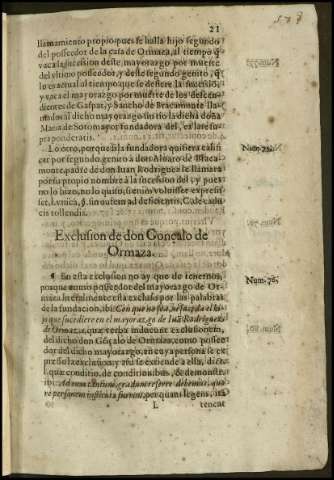 21
578
llamamiento propio pues se halla hijo segundo
del posseedor de la casa de Ormaza, al tiempo q̃
vaca la sucession deste mayorazgo por muerte
del vltimo posseedor, y deste segundo genito, q̃
lo es actual al tiempo que se defiere la sucesiõ,
y vaca el mayorazgo por muerte de los descen-
dientes de Gaspar, y Sancho de Bracamonte lla-
mados al dicho mayorazgo sintio la dicha doña
Maria de Sotomayor, fundadora del,
ponderatis.
Lo otro, porque si la fundadora quisiera califi-
car por segundo genito a don Aluaro de Braca-
monte padre de don Iuan Rodriguez le llamara
por su propio nombre a la sucession del y pues
no lo hizo, no lo quiso, si enim voluisset expressis-
set, l. vnica, §. sin autem ad deficientis, C. de cadu-
cis tollendis.
Num. 75.
Exclusion de don Gonçalo de
Ormaza.
¶ En esta exclusion no ay que detenernos,
porque como posseedor del mayorazgo de Or-
maza literalmente esta excluso por las palabras
de la fundacion, ibi, Con que no sea, ni pueda el hi-
jo que sucediere en el mayorazgo de Iuã Rodriguez
de Ormaza, quæ verba inducunt exclusionem,
del dicho don Gõçalo de Ormaza, como possee-
dor del dicho mayorazgo, en cuya persona se ex-
pressò la exclusion, y assi se estiende a ella, dicta
l. quæ conditio, de condicionibus, & demonstr.
ibi:
re personam iniuncta fuerint, per quam legens, ita
Num. 76.
L
tenent